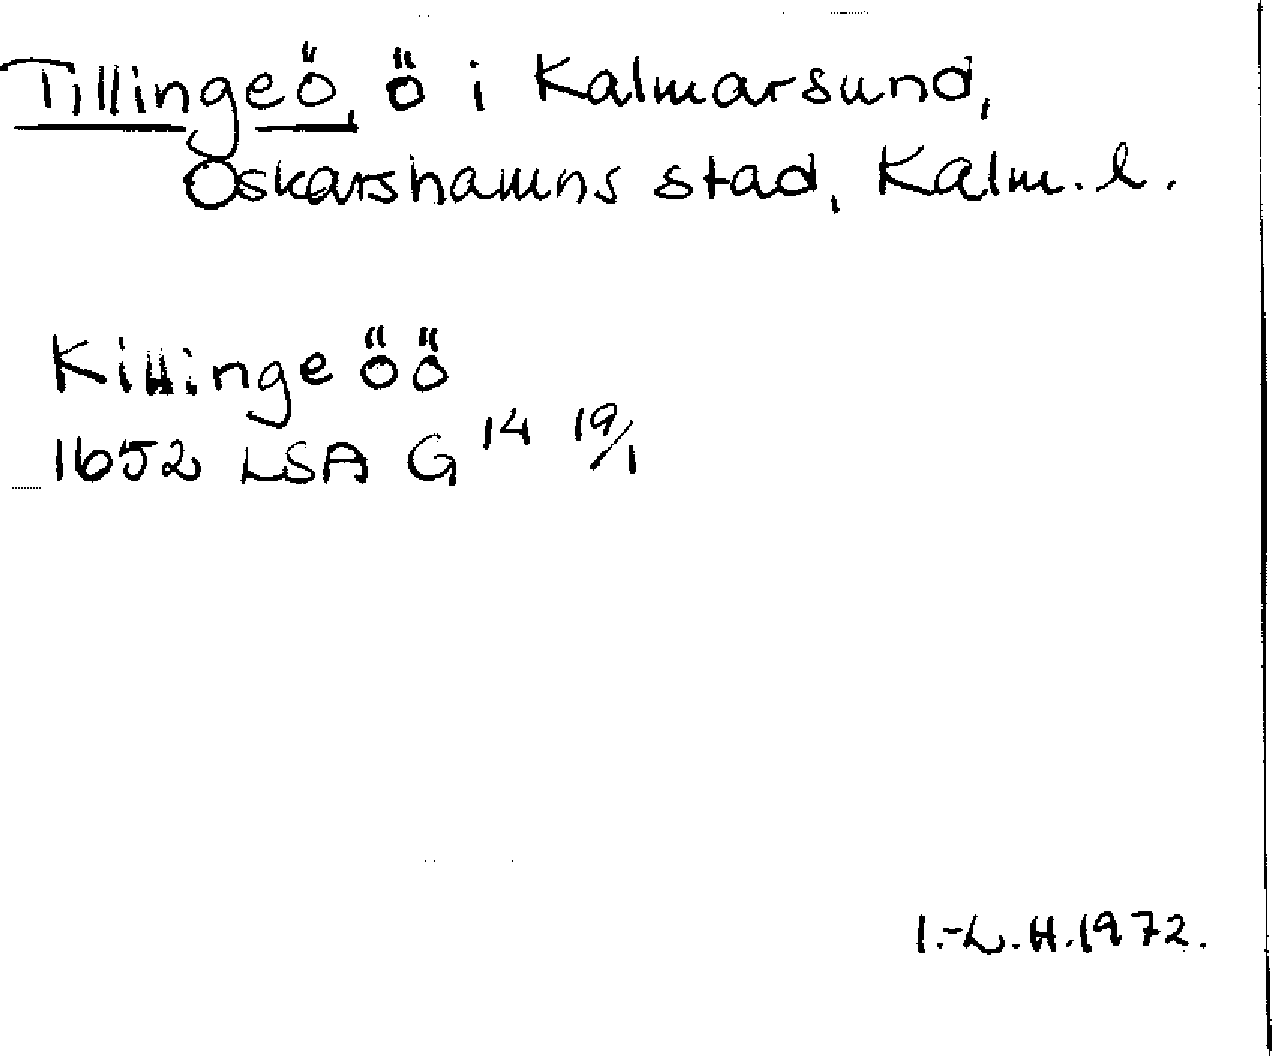 Tillingeö, ö i Kalmarsund,
Oskarshamns stad, Kalm. l.
Killinge öö
1652 LSA G 14 19/1
I.-L. H. 1972.